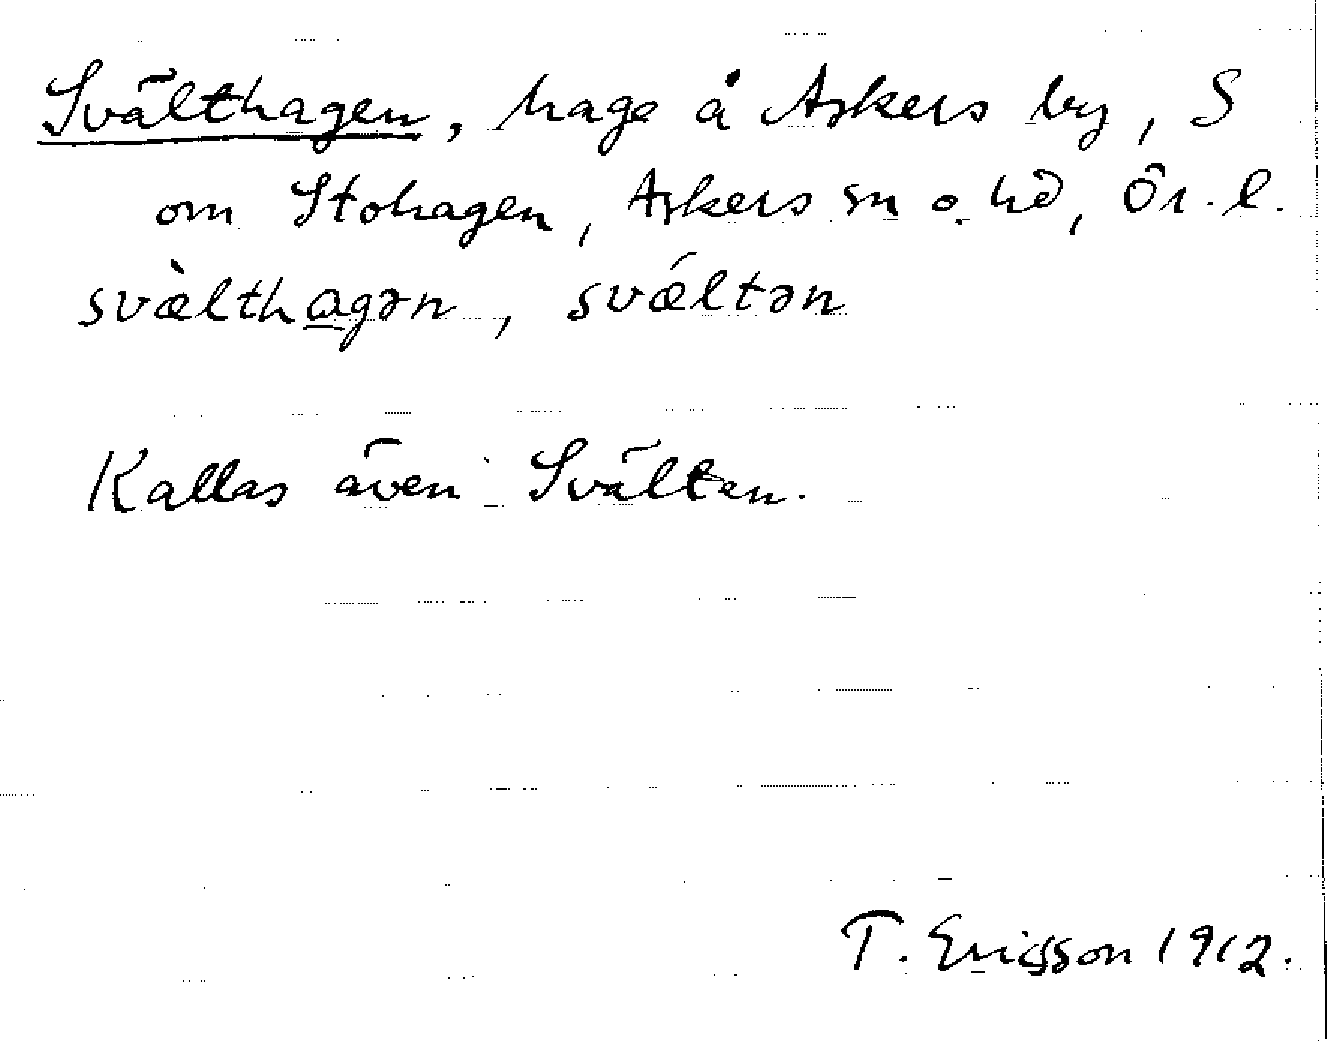 Svälthagen, hage å Askers by, S
om Stohagen, Askers sn o. hd, Ör. l.
svæ̀lthagən, svǽltən
Kallas även Svälten.
T. Ericsson 1912.